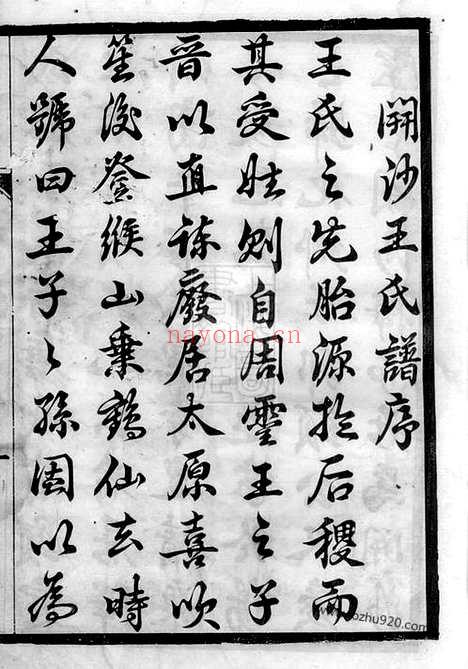 開沙王氏譜序
王氏之先胎源於后稷而
其受姓則自周靈王之子
晉以直諫廢居太原喜吹
笙後登緱山乗鶴仙去時
人號曰王子〻孫因以為
nayona.cn
bzhu920.com